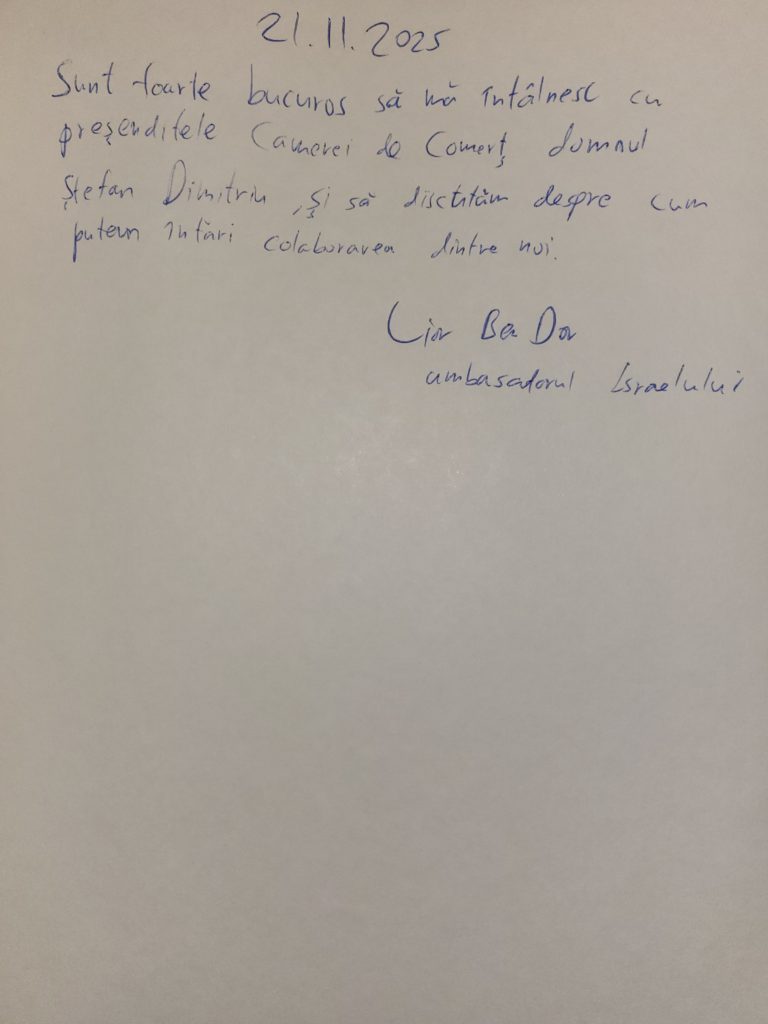 21.11.2025
Sunt foarte bucuros să mă întâlnesc cu
preşenditele Camerei de Comerţ domnul
Ştefan Dimitriu, şi să disctutăm despre cum
putem întări colaborarea dintre noi.
Lior Ben Dor
ambasadorul Israelului